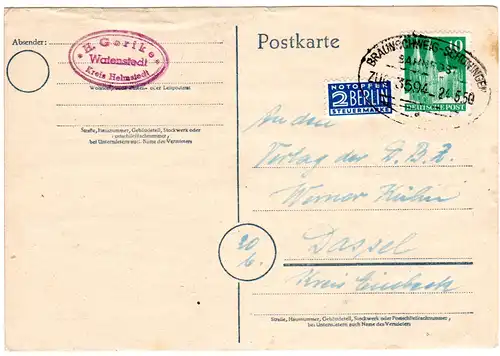 Absender:
H. Gerike
Watenstedt
Kreis Helmstedt
Straße, Hausnummer, Gebäudeteil, Stockwerk oder
Postschließfachnummer,
bei Untermietern auch Name des Vermieters
Postkarte
BRAUNSCHWEIG-SCHÖNINGEN
ZUG 3594 24.5.50
10
DEUTSCHE POST
NOTOPFER
2 BERLIN
STEUERMARKE
An den
Verlag der D.B.Z.
Werner Kühn
20
b.
Dassel
Kreis Einbeck
Straße, Hausnummer, Gebäudeteil, Stockwerk oder Postschließfachnummer,
bei Untermietern auch Name des Vermieters